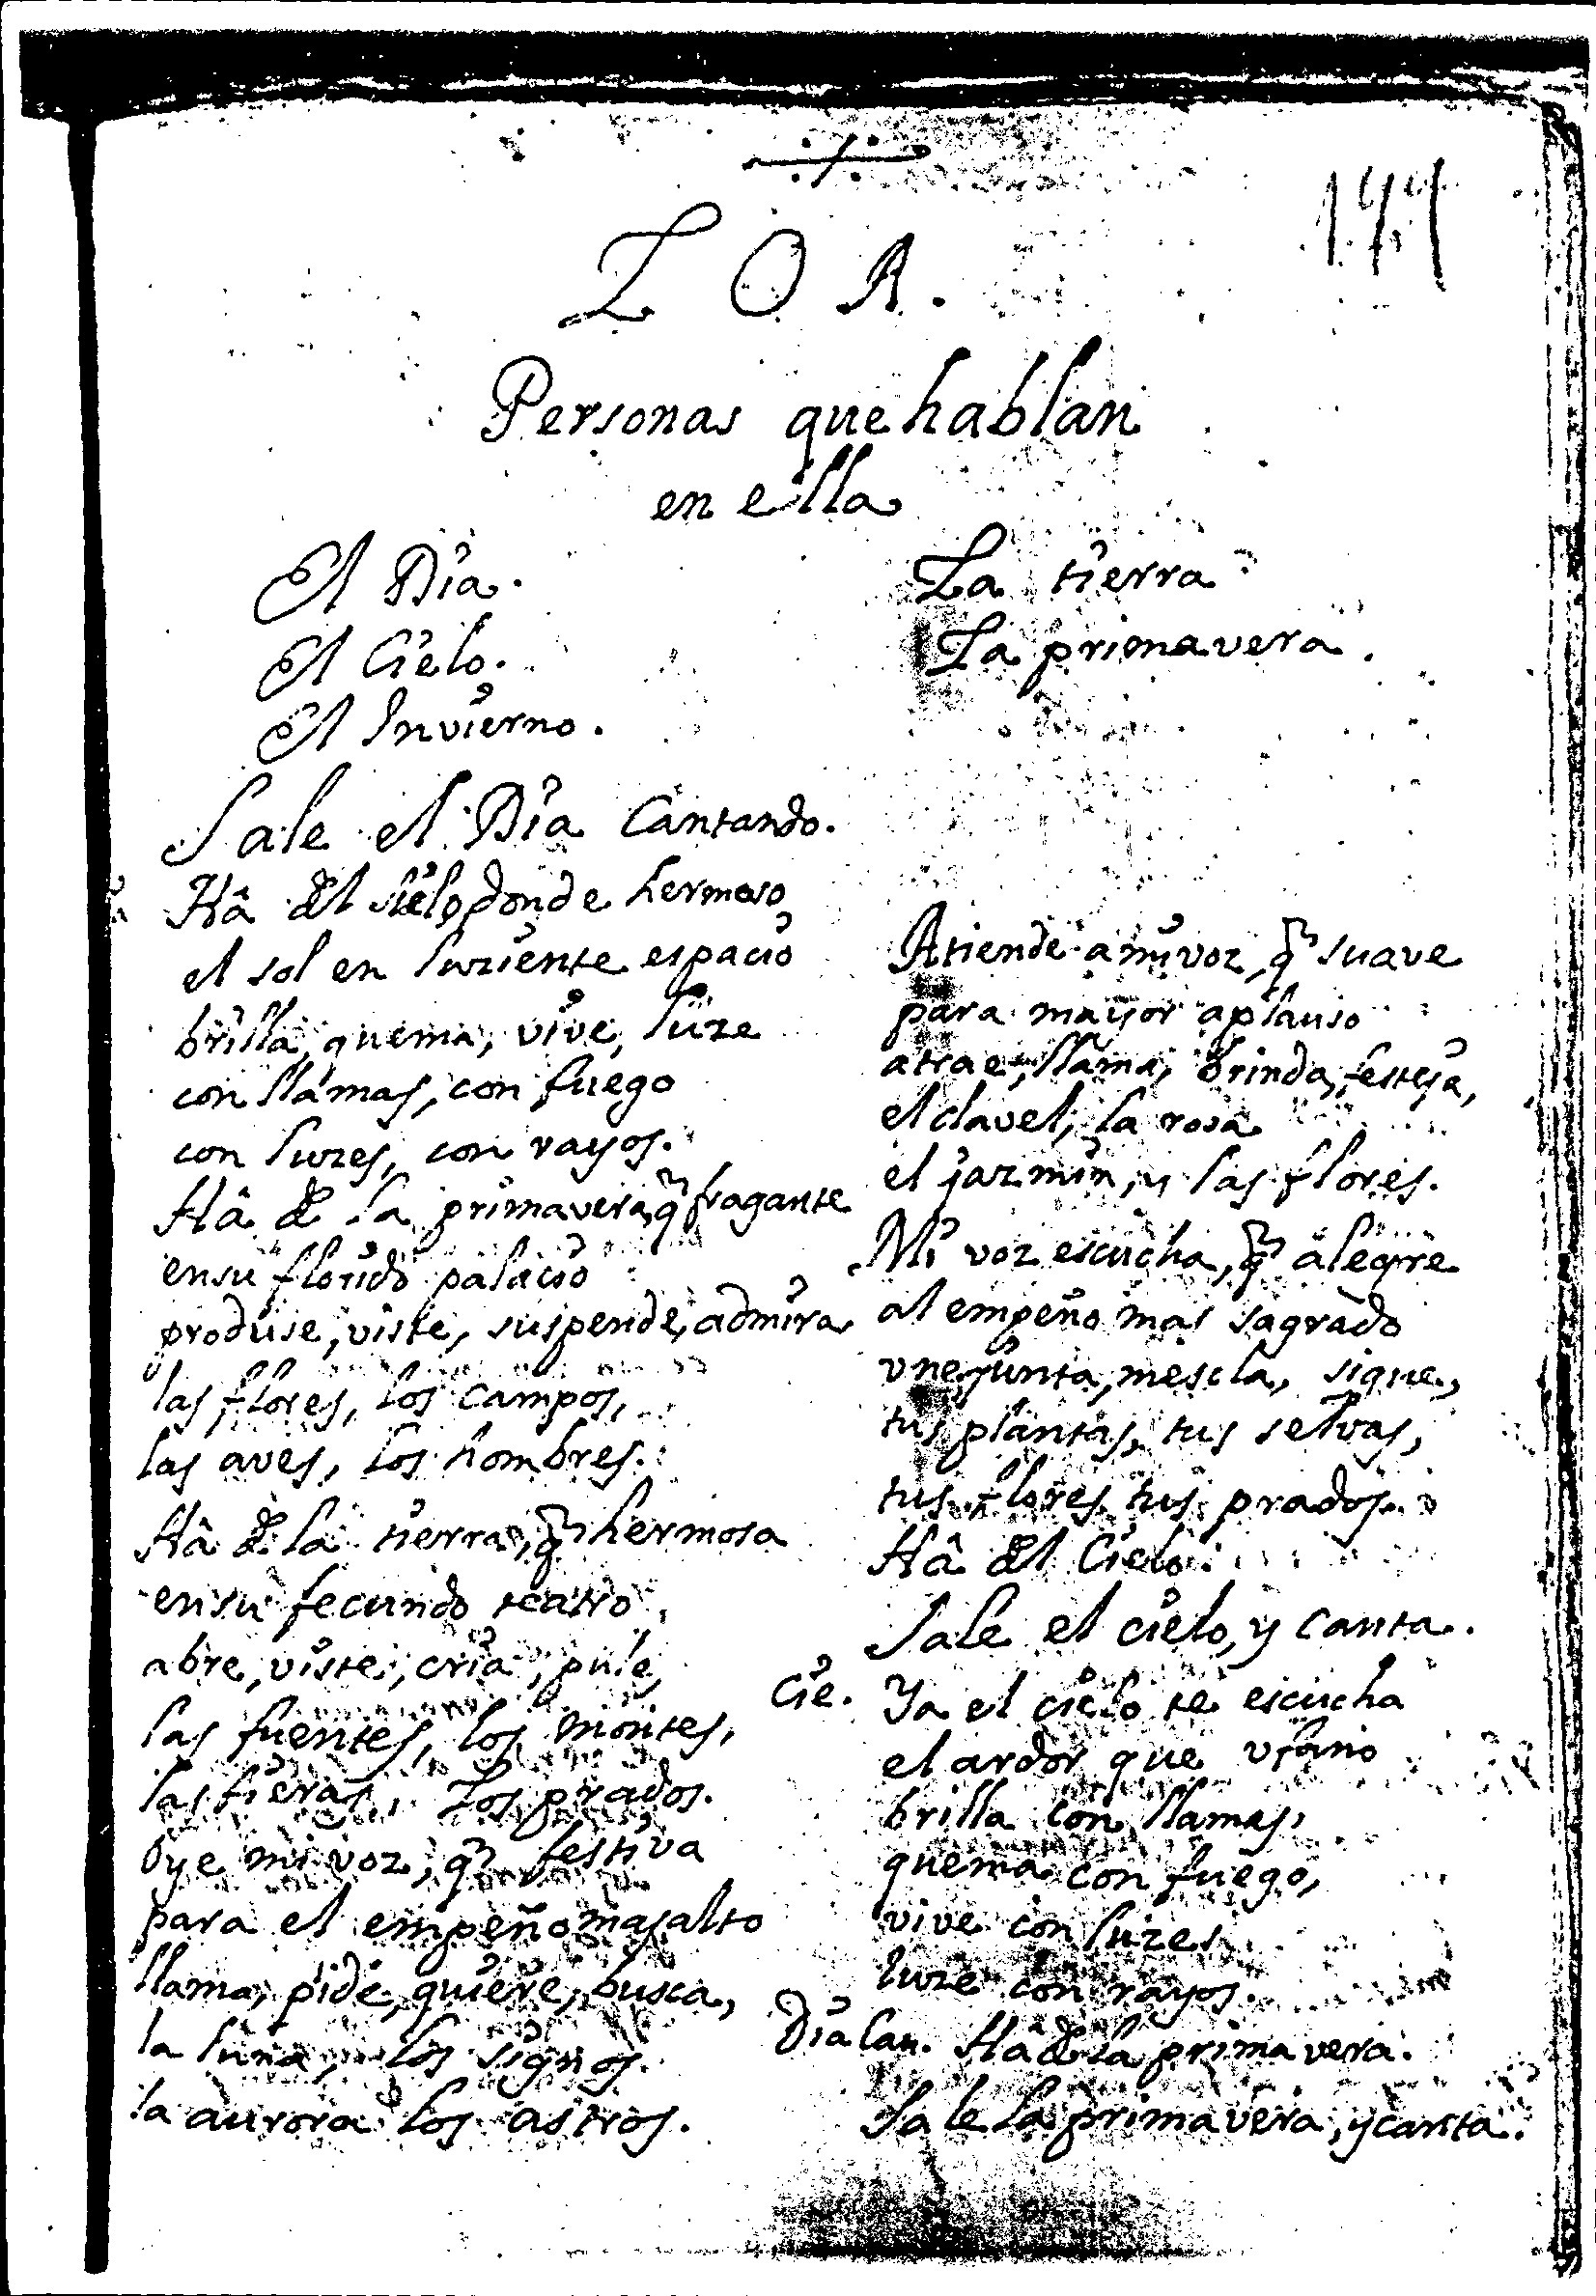 144
LOA.
Personas que hablan
en ella
El Dia.
El Cielo.
El Invierno.
La tierra
La primavera.
Sale el Dia Cantando.
Hâ del sielo, donde hermoso
el sol en luziente espacio
brilla, quema, vive, luze
con llamas, con fuego
con luzes, con rayos.
Hâ de la primavera, q̃ fragante
en su florido palacio
produse, viste, suspende, admira
las flores, los campos,
las aves, los hombres.
Hâ de la tierra, q̃ hermosa
en su fecundo teatro
abre, viste, cria, pule,
las fuentes, los montes,
las fieras, los prados.
Oye mi voz, q̃ festiva
para el empeño mas alto
llama, pide, quiere, busca,
la luna, los signos.
la aurora los astros.
Atiende a mi voz, q̃ suave
para mayor aplauso
atrae, llama, brinda, festeja,
el clavel, la rosa
el jazmin, y las flores.
Mi voz escucha, q̃ alegre
al empeño mas sagrado
vne, junta, mescla, sigue,
tus plantas, tus selvas,
tus flores, tus prados.
Hâ del Cielo.
Sale el cielo, y canta.
Cie. Ya el cielo te escucha
el ardor que vfano
brilla con llamas,
quema con fuego,
vive con luzes
luze con rayos.
Dia Can. Hâ de la primavera.
Sale la primavera, y canta.